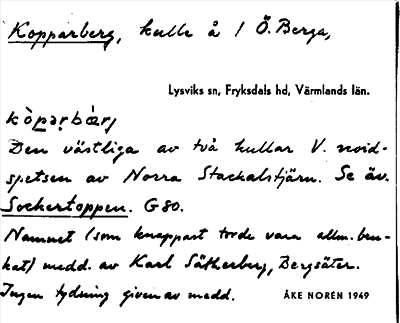 Kopparberg, kulle å 1 Ö. Berga,
Lysviks sn, Fryksdals hd, Värmlands län.
kòpa̠r̠bæ̀rj
Den västliga av två kullar V. nordspetsen av Norra Stackalstjärn. Se äv.
Sockertoppen. G 80.
Namnet (som knappast torde vara allm. brukat) medd. av Karl Sätherberg, Bergsäter.
Ingen tydning given av medd.
ÅKE NORÉN 1949